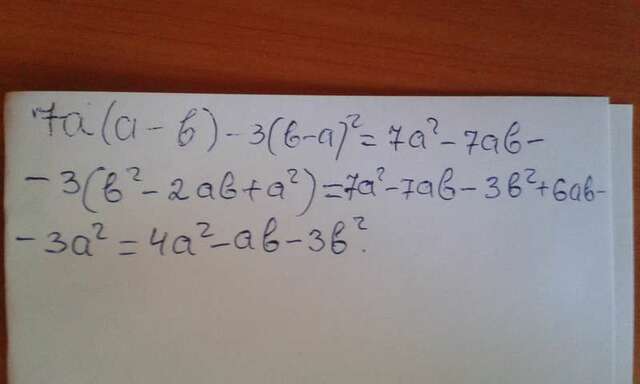 7a(a-в)-3(в-a)²=7a²-7aв-
-3(в²-2aв+a²)=7a²-7aв-3в²+6aв-
-3a²=4a²-aв-3в².